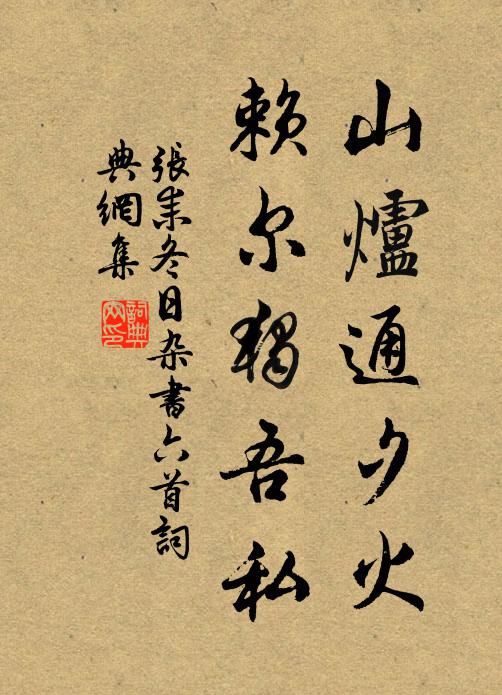 山爐通夕火
赖尔獨吾私
張耒冬日杂書六首詞
典網集
詞典網印